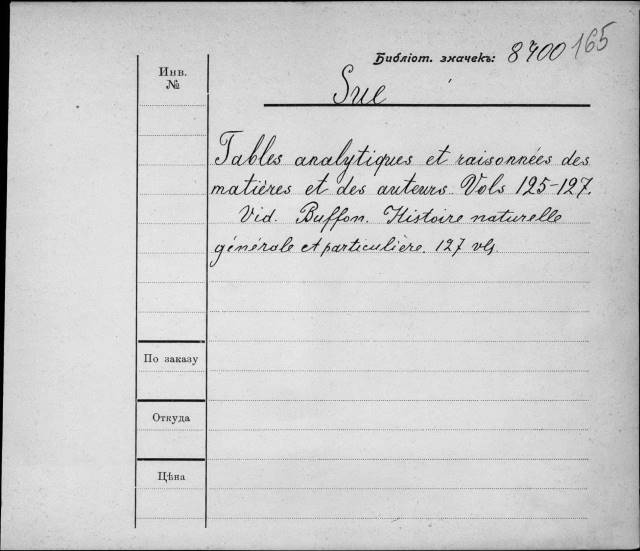 Библіот. значекъ: 8400 165
Инв.
№
Sue
Tables analytiques et raisonnées des
matières et des auteurs. Vols 125-127.
Vid. Buffon. Histoire naturelle
générale et particulière. 127 vls.
По заказу
Откуда
Цѣна